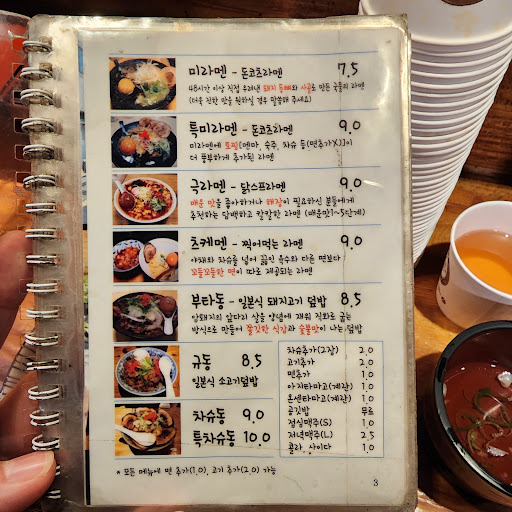 미라멘 - 돈코츠라멘 7.5
48시간 이상 직접 우려낸 돼지 등뼈와 사골로 만든 국물의 라멘
(더욱 진한 맛을 원하실 경우 말씀해 주세요)
특미라멘 - 돈코츠라멘 9.0
미라멘에 토핑[멘마, 숙주, 차슈 등(면추가X)]이
더 풍부하게 추가된 라멘
극라멘 - 닭스프라멘 9.0
매운 맛을 좋아하거나 해장이 필요하신 분들에게
추천하는 담백하고 칼칼한 라멘 (매운맛1~5단계)
츠케멘 - 찍어먹는 라멘 9.0
야채와 차슈를 넣어 끓인 육수와 다른 면보다
꼬들꼬들한 면이 따로 제공되는 라멘
부타동 - 일본식 돼지고기 덮밥 8.5
암퇘지의 앞다리 살을 양념에 재워 직화로 굽는
방식으로 만들어 쫄깃한 식감과 숯불맛이 나는 덮밥
규동 8.5
일본식 소고기덮밥
차슈동 9.0
특차슈동 10.0
차슈추가(2장) 2.0
고기추가 2.0
면추가 1.0
아지타마고(계란) 1.0
온센타마고(계란) 1.0
공깃밥 무료
점심맥주(S) 1.0
저녁맥주(L) 2.5
콜라, 사이다 2.0
* 모든 메뉴에 면 추가(1.0), 고기 추가(2.0) 가능
3